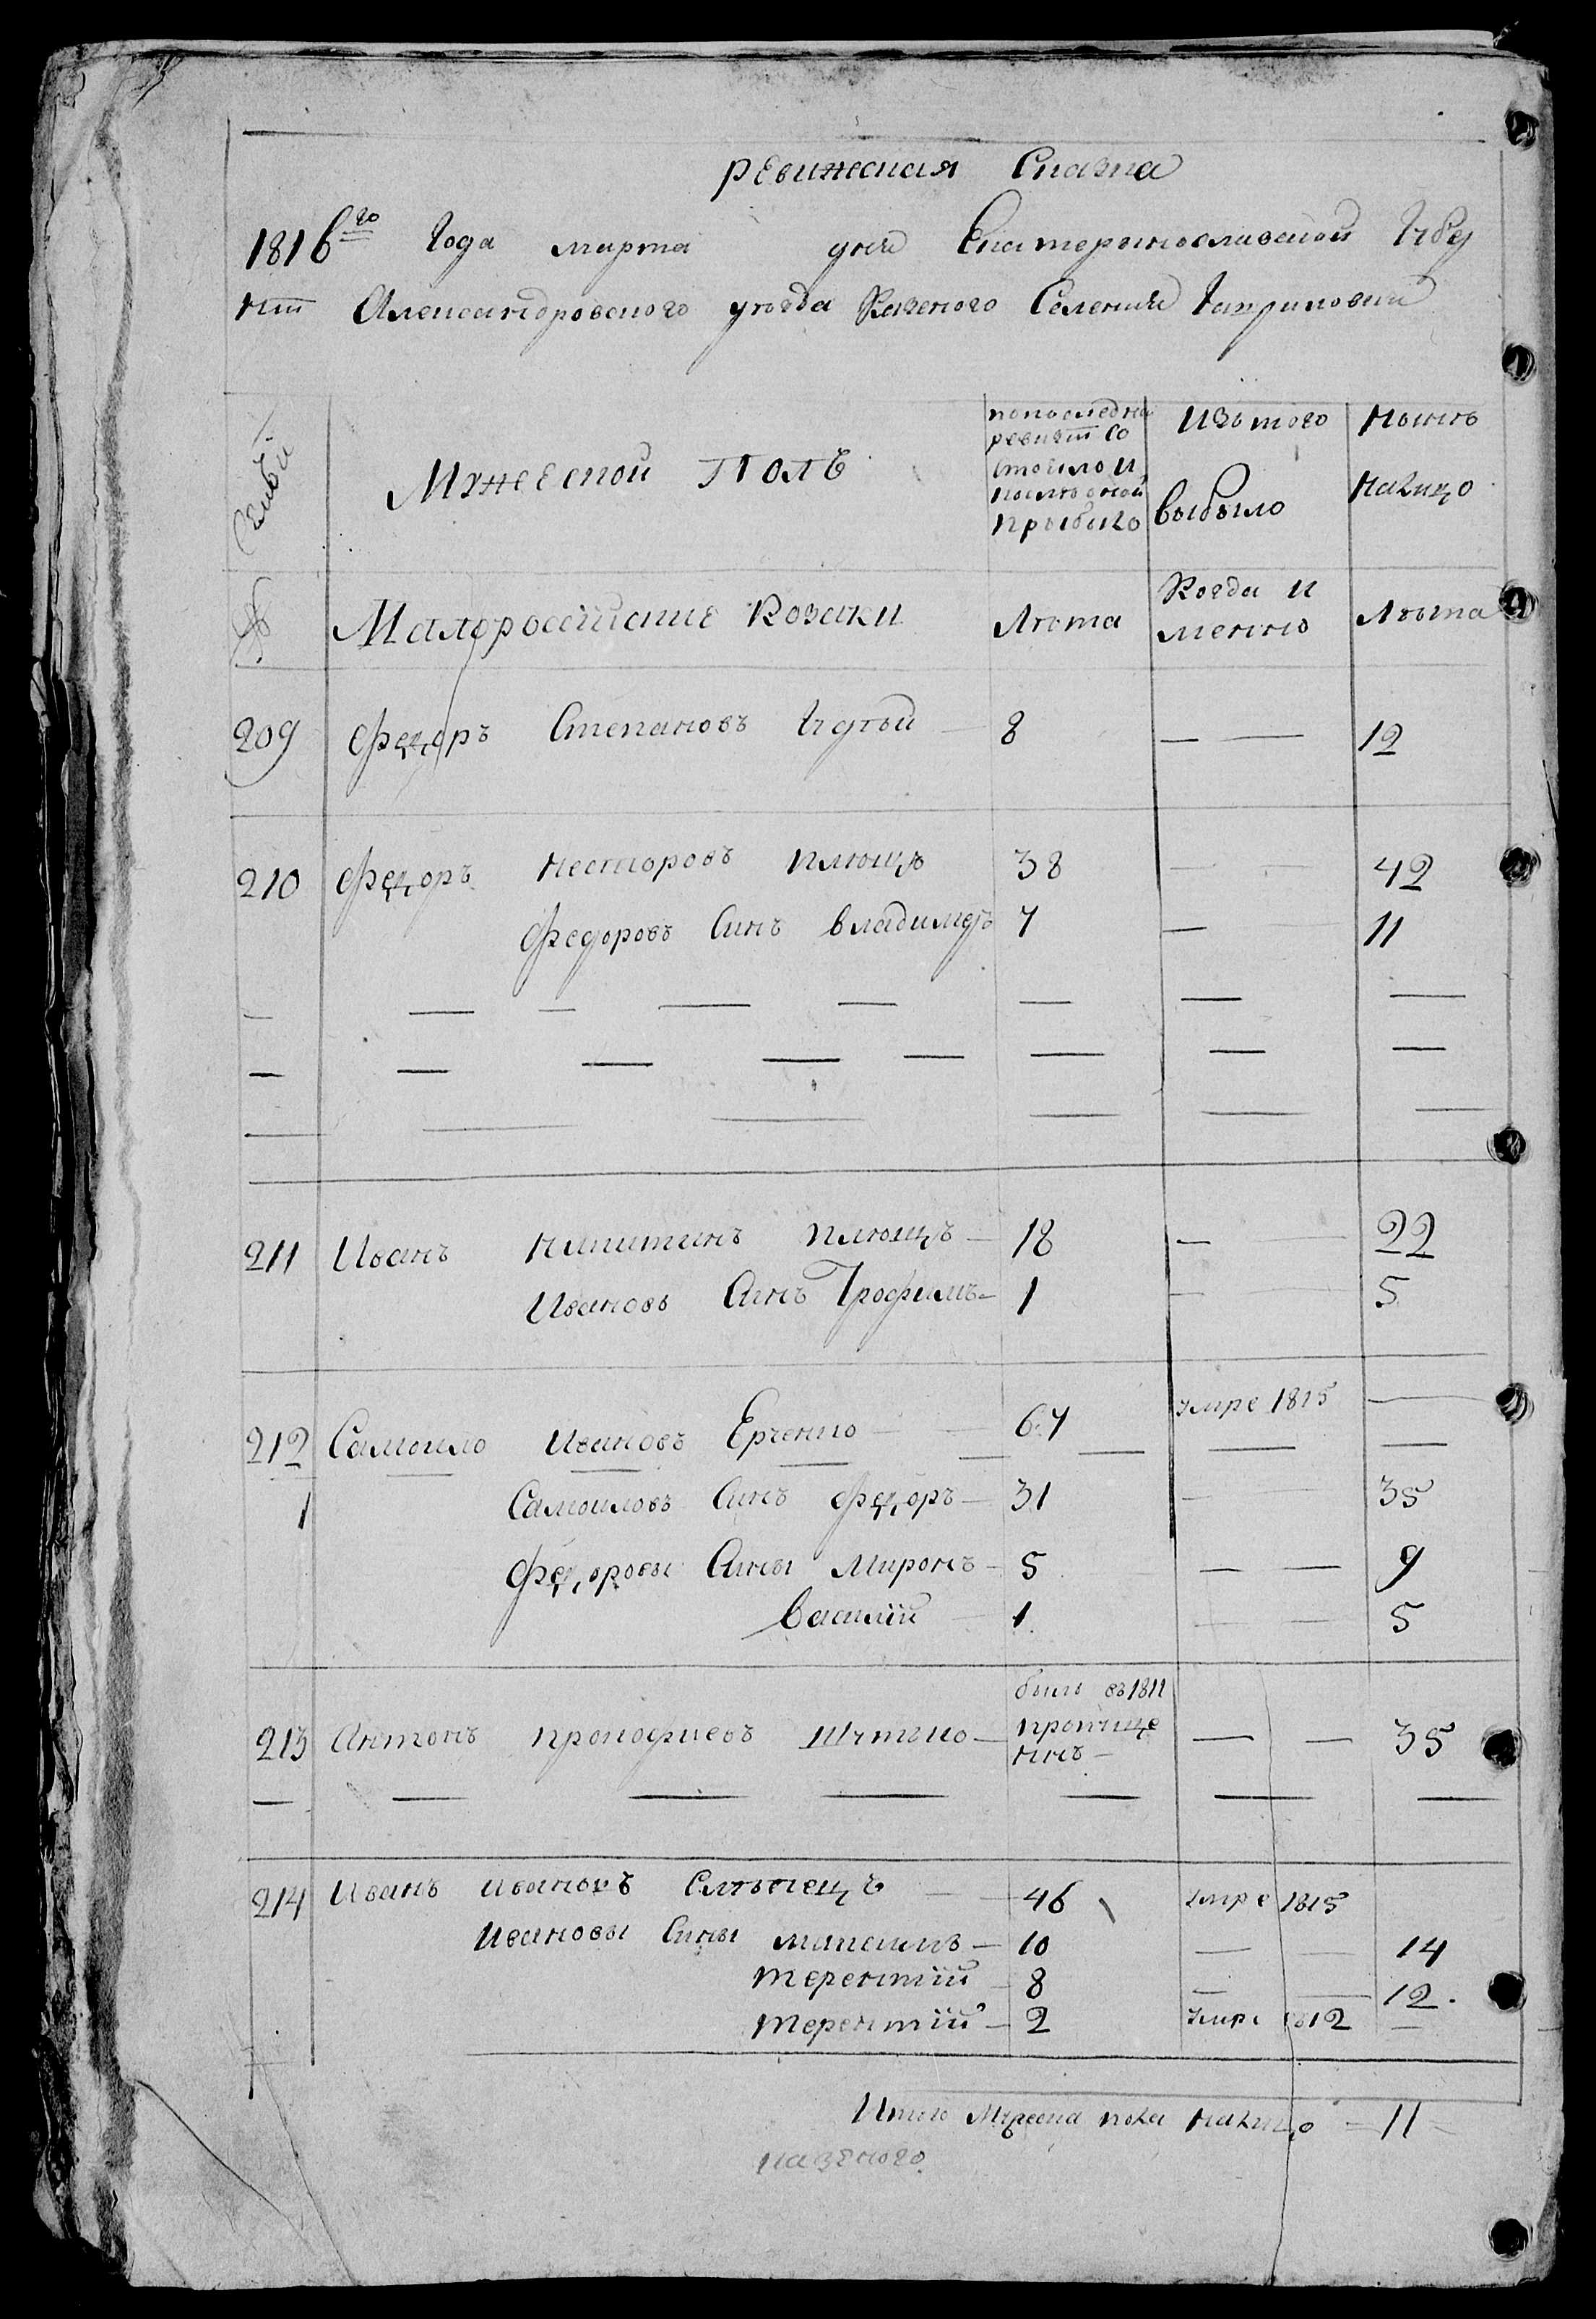 ревижеская Сказка
1816го года марта дня Екатеринославской губер
нии Александровского уезда Казеного Селения Гавриловки
Мужеской Полъ
попоследней
ревизии со
стояло и
после оной
прибыло
Изъ того
выбыло
Ныне
налицо
Малороссийские Козаки
Лета
Когда и
менно
Лета
209 Федоръ Степановъ — 8 — — 12
210 Федоръ Несторовъ Плющъ 38 — — 42
Федоровъ Синъ Владимеръ 7 — 11
211 Иванъ Никитинъ Плющъ — 18 — — 22
Ивановъ Синъ Трофимъ — 1 — — 5
212 Самойло Ивановъ — — 67 умре 1815 —
1 Самойловъ Синъ Федоръ — 31 — — 35
Федоровы Сины Миронъ — 5 — — 9
Василий — 1 — — 5
213 Антонъ Прокофиевъ Шутько — былъ въ 1811 — — 35
пропуще
ннъ —
214 Иванъ Ивановъ Слепецъ — — 46 умре 1815
Ивановы Сины Максимъ — 10 — — 14
Терентий — 8 — — 12.
Терентий — 2 умре 1812 —
Итого Мужеска пола налицо — 11 —
казеного